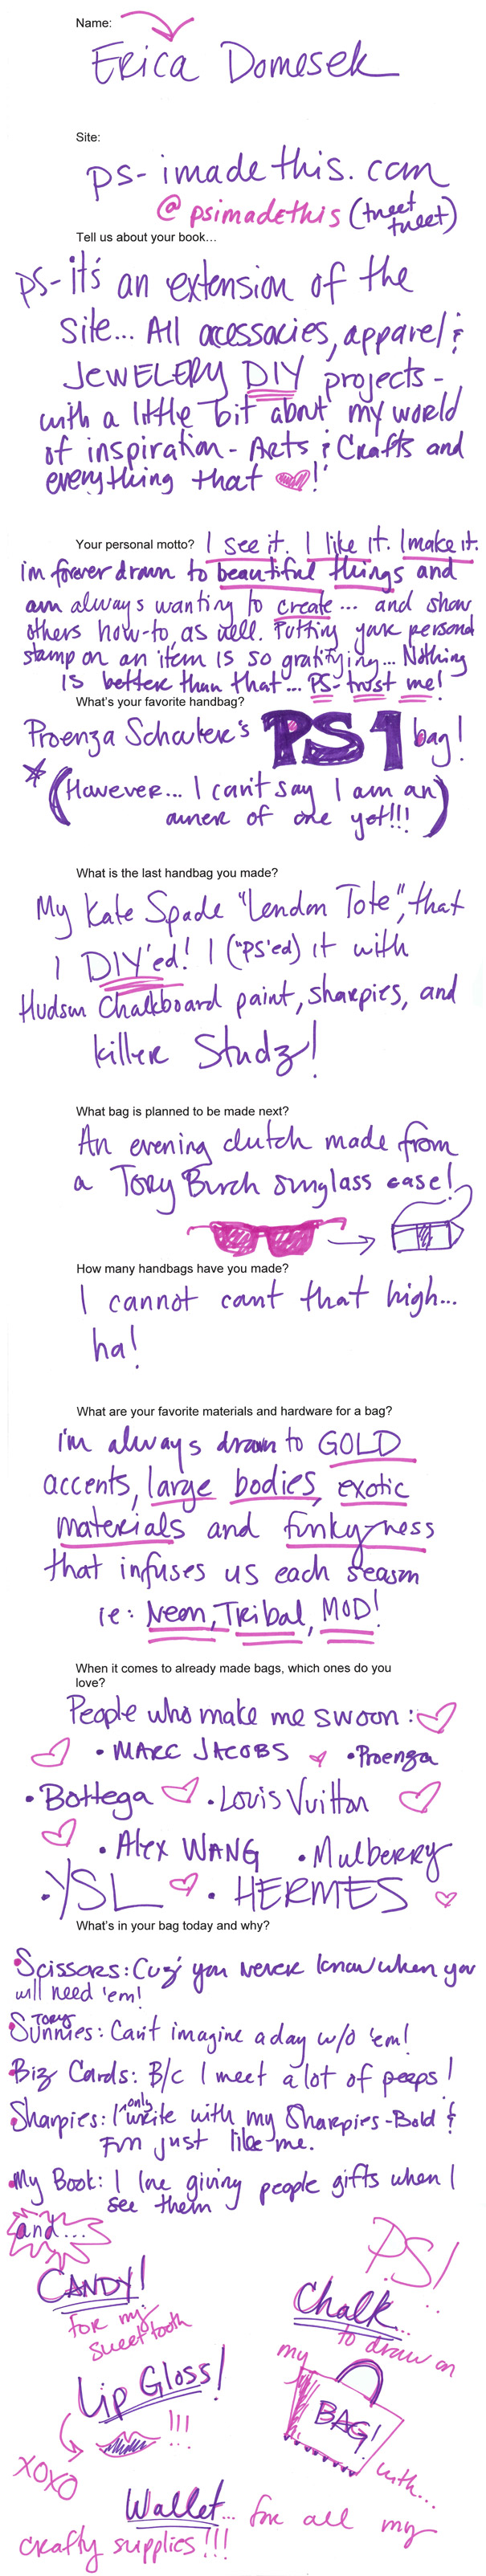 Name:
Erica Domesek
Site:
ps-imadethis.com
@psimadethis (tweet
tweet)
Tell us about your book...
ps- it's an extension of the
site... All acessocies, apparel &
JEWELERY DIY projects -
with a little bit about my world
of inspiration - Arts & Crafts and
everything that ♥!
Your personal motto? I see it. I like it. I make it.
im forever drawn to beautiful things and
am always wanting to create... and show
others how-to as well. Putting your personal
stamp on an item is so gratifying... Nothing
is better than that... PS- trust me!
What's your favorite handbag?
Proenza Schouler's PS1 bag!
* (However... I can't say I am an
owner of one yet!!!)
What is the last handbag you made?
My Kate Spade "London Tote", that
I DIY'ed! I ("PS'ed) it with
Hudson Chalkboard paint, sharpies, and
killer Studz!
What bag is planned to be made next?
An evening clutch made from
a Tory Burch sunglass case!
How many handbags have you made?
I cannot count that high...
ha!
What are your favorite materials and hardware for a bag?
I'm always drawn to GOLD
accents, large bodies, exotic
materials and funky-ness
that infuses us each season
ie: Neon, Tribal, MOD!
When it comes to already made bags, which ones do you
love?
People who make me swoon: ♥
• MARC JACOBS • Proenza
• Bottega • Louis Vuitton
• Alex WANG • Mulberry
• YSL • HERMES
What's in your bag today and why?
• Scissors: Cuz' you never know when you
will need 'em!
• Tory Sunnies: Can't imagine a day w/o 'em!
• Biz Cards: B/c I meet a lot of peeps!
• Sharpies: I only write with my Sharpies - Bold &
Fun just like me.
• My Book: I love giving people gifts when I
see them
and...
CANDY!
for my
sweet tooth
PS!
Chalk...
to draw on
my
BAG!
with...
Lip Gloss!
!!!
XOXO
Wallet... for all my
crafty supplies!!!